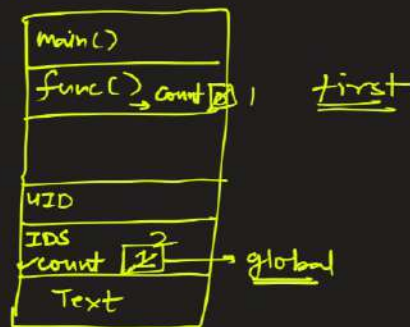 main()
func() → count 0 1 first
UID
IDS 2
✓count 1 → global
Text